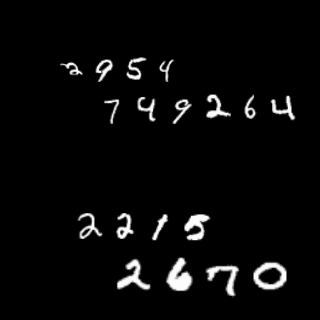 2954
749264
2215
2670